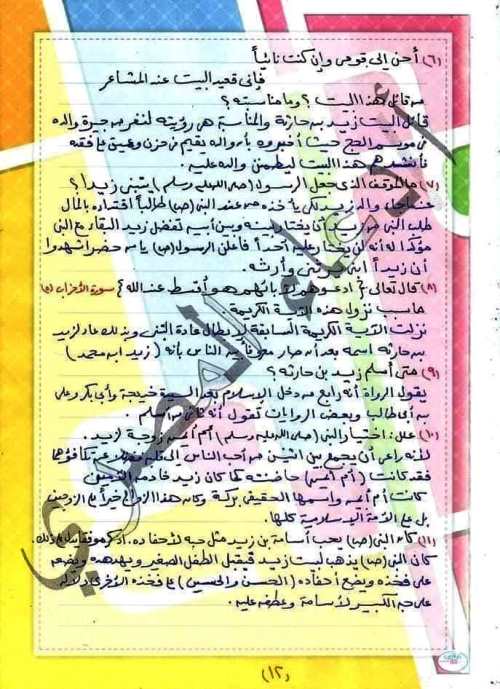 (٦) أحن إلى قومى وإن كنت نائياً
فإنى قعيد البيت عند المشاعر
من قائل هذا البيت ؟ وما مناسبته ؟
قائل البيت زيد بن حارثة والمناسبة هى رؤيته لنفر من جيرة والده
فى موسم الحج حيث أخبروه بأن والده يقيم فى حزن وعين على فقده
فأنشدهم هذا البيت ليطمئن والده عليه .
(٧) ما الموقف الذى جعل الرسول (صلى الله عليه وسلم) يتبنى زيداً ؟
عندما جاء والد زيد لكى يأخذه من عند النبى (ص) طالباً افتداءه بالمال
طلب النبى من زيد أن يختار بينه وبين أبيه ففضل زيد البقاء مع النبى
مؤكداً له أنه لن يختار عليه أحداً فأعلن الرسول (ص) يا من حضر اشهدوا
أن زيداً ابنى يرثنى وأرثه .
(٨) قال تعالى { ادعوهم لآبائهم هو أقسط عند الله } سورة الأحزاب (٥)
ما سبب نزول هذه الآية الكريمة
نزلت الآية الكريمة السابقة لإبطال عادة التبنى وبذلك عاد لزيد
بن حارثة اسمه بعد أن صار معروفاً بين الناس بأنه ( زيد ابن محمد )
(٩) متى أسلم زيد بن حارثة ؟
يقول الرواة أنه رابع من دخل الإسلام بعد السيدة خديجة وأبى بكر وعلى
بن أبى طالب وبعض الروايات تقول أنه ثانى من أسلم .
(١٠) علل : اختيار النبى (صلى الله عليه وسلم) أم أيمن زوجة لزيد .
لأنه راعى أن يجمع بين اثنين من أحب الناس إلى قلبه فضلاً عن تكافؤهما
فقد كانت ( أم أيمن ) حاضنته كما كان زيد خادمه الأمين
كانت أم أيمن واسمها الحقيقى بركة وكان هذا الزواج خيراً على الزوجين
بل على الأمة الإسلامية كلها .
(١١) كان النبى (ص) يحب أسامة بن زيد مثل حبه لأحفاده . اذكر موقفاً يدل على ذلك .
كان النبى (ص) يذهب لبيت زيد فيقبل الطفل الصغير ويهدهده ويضعه
على فخذه ويضع أحفاده ( الحسن والحسين ) على فخذه الأخرى دلالة
على حبه الكبير لأسامة وعطفه عليه .
(١٢)